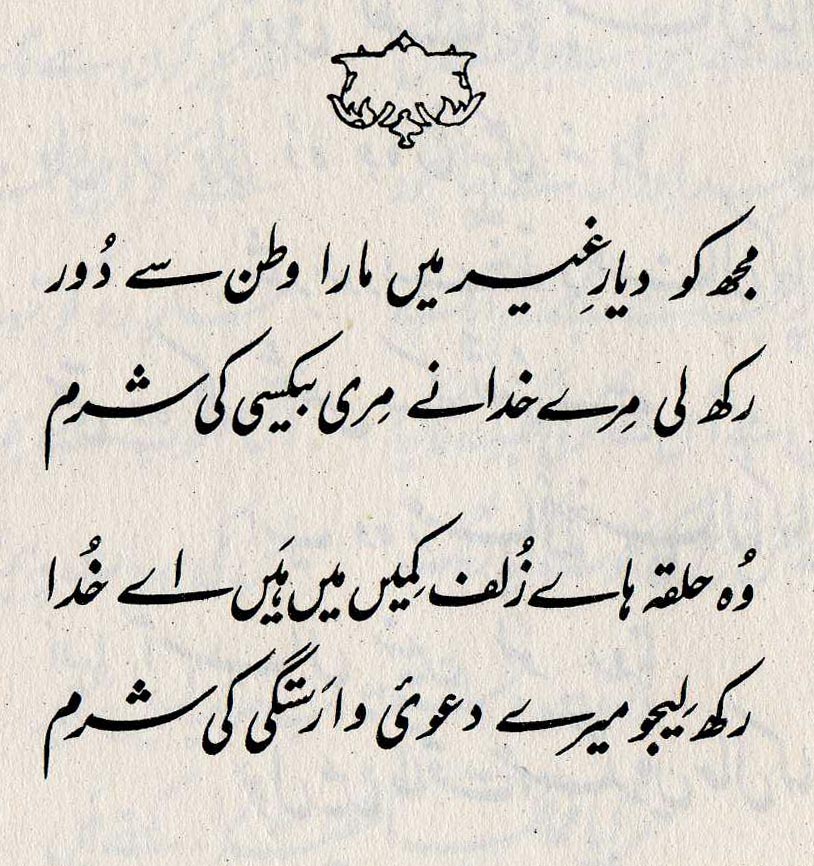 مجھ کو دیارِ غیر میں مارا وطن سے دُور
رکھ لی مِرے خدا نے مِری بیکسی کی شرم
وُہ حلقہ ہاے زُلف کمِیں میں ہَیں اے خُدا
رکھ لَیجو میرے دعویٔ وارَستگی کی شرم